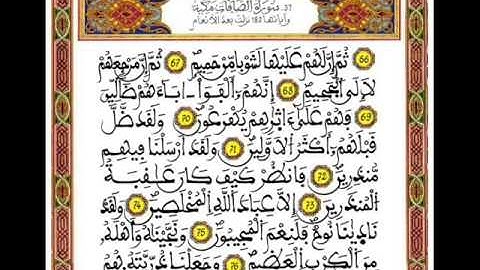 37. سورة الصافات مكية
وآياتها 182 نزلت بعد الأنعام
66 ثُمَّ إِنَّ لَهُمْ عَلَيْهَا لَشَوْبًا مِّنْ حَمِيمٍ 67 ثُمَّ إِنَّ مَرْجِعَهُمْ
لَإِلَى الْجَحِيمِ 68 إِنَّهُمْ أَلْفَوَاْ ابَاءَهُمْ ضَالِّينَ
69 فَهُمْ عَلَى ءَاثَٰرِهِمْ يُهْرَعُونَ 70 وَلَقَد ضَّلَّ
قَبْلَهُمْ أَكْثَرُ الْأَوَّلِينَ 71 وَلَقَدَ ارْسَلْنَا فِيهِم
مُّنذِرِينَ 72 فَانظُرْ كَيْفَ كَانَ عَٰقِبَةُ
الْمُنذَرِينَ 73 إِلَّا عِبَادَ اللَّهِ الْمُخْلَصِينَ 74 وَلَقَدْ
نَادَيٰنَا نُوحٌ فَلَنِعْمَ الْمُجِيبُونَ 75 وَنَجَّيْنَٰهُ وَأَهْلَهُ
مِنَ الْكَرْبِ الْعَظِيمِ 76 وَجَعَلْنَا ذُرِّيَّتَهُ هُمُ